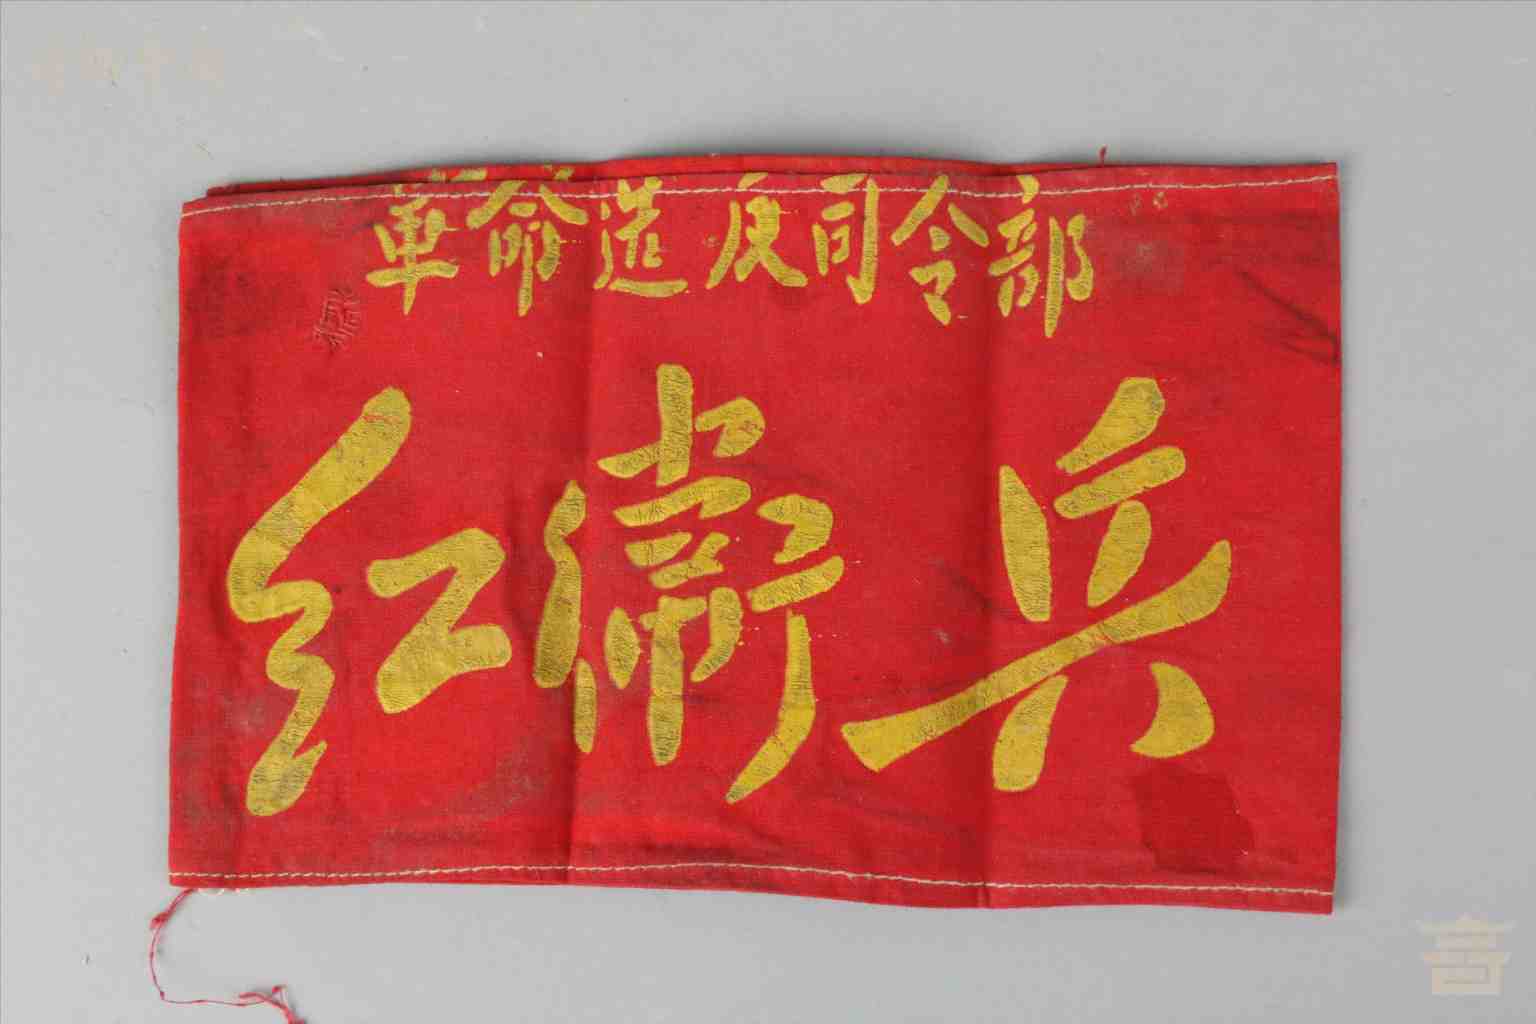 革命造反司令部
红衛兵